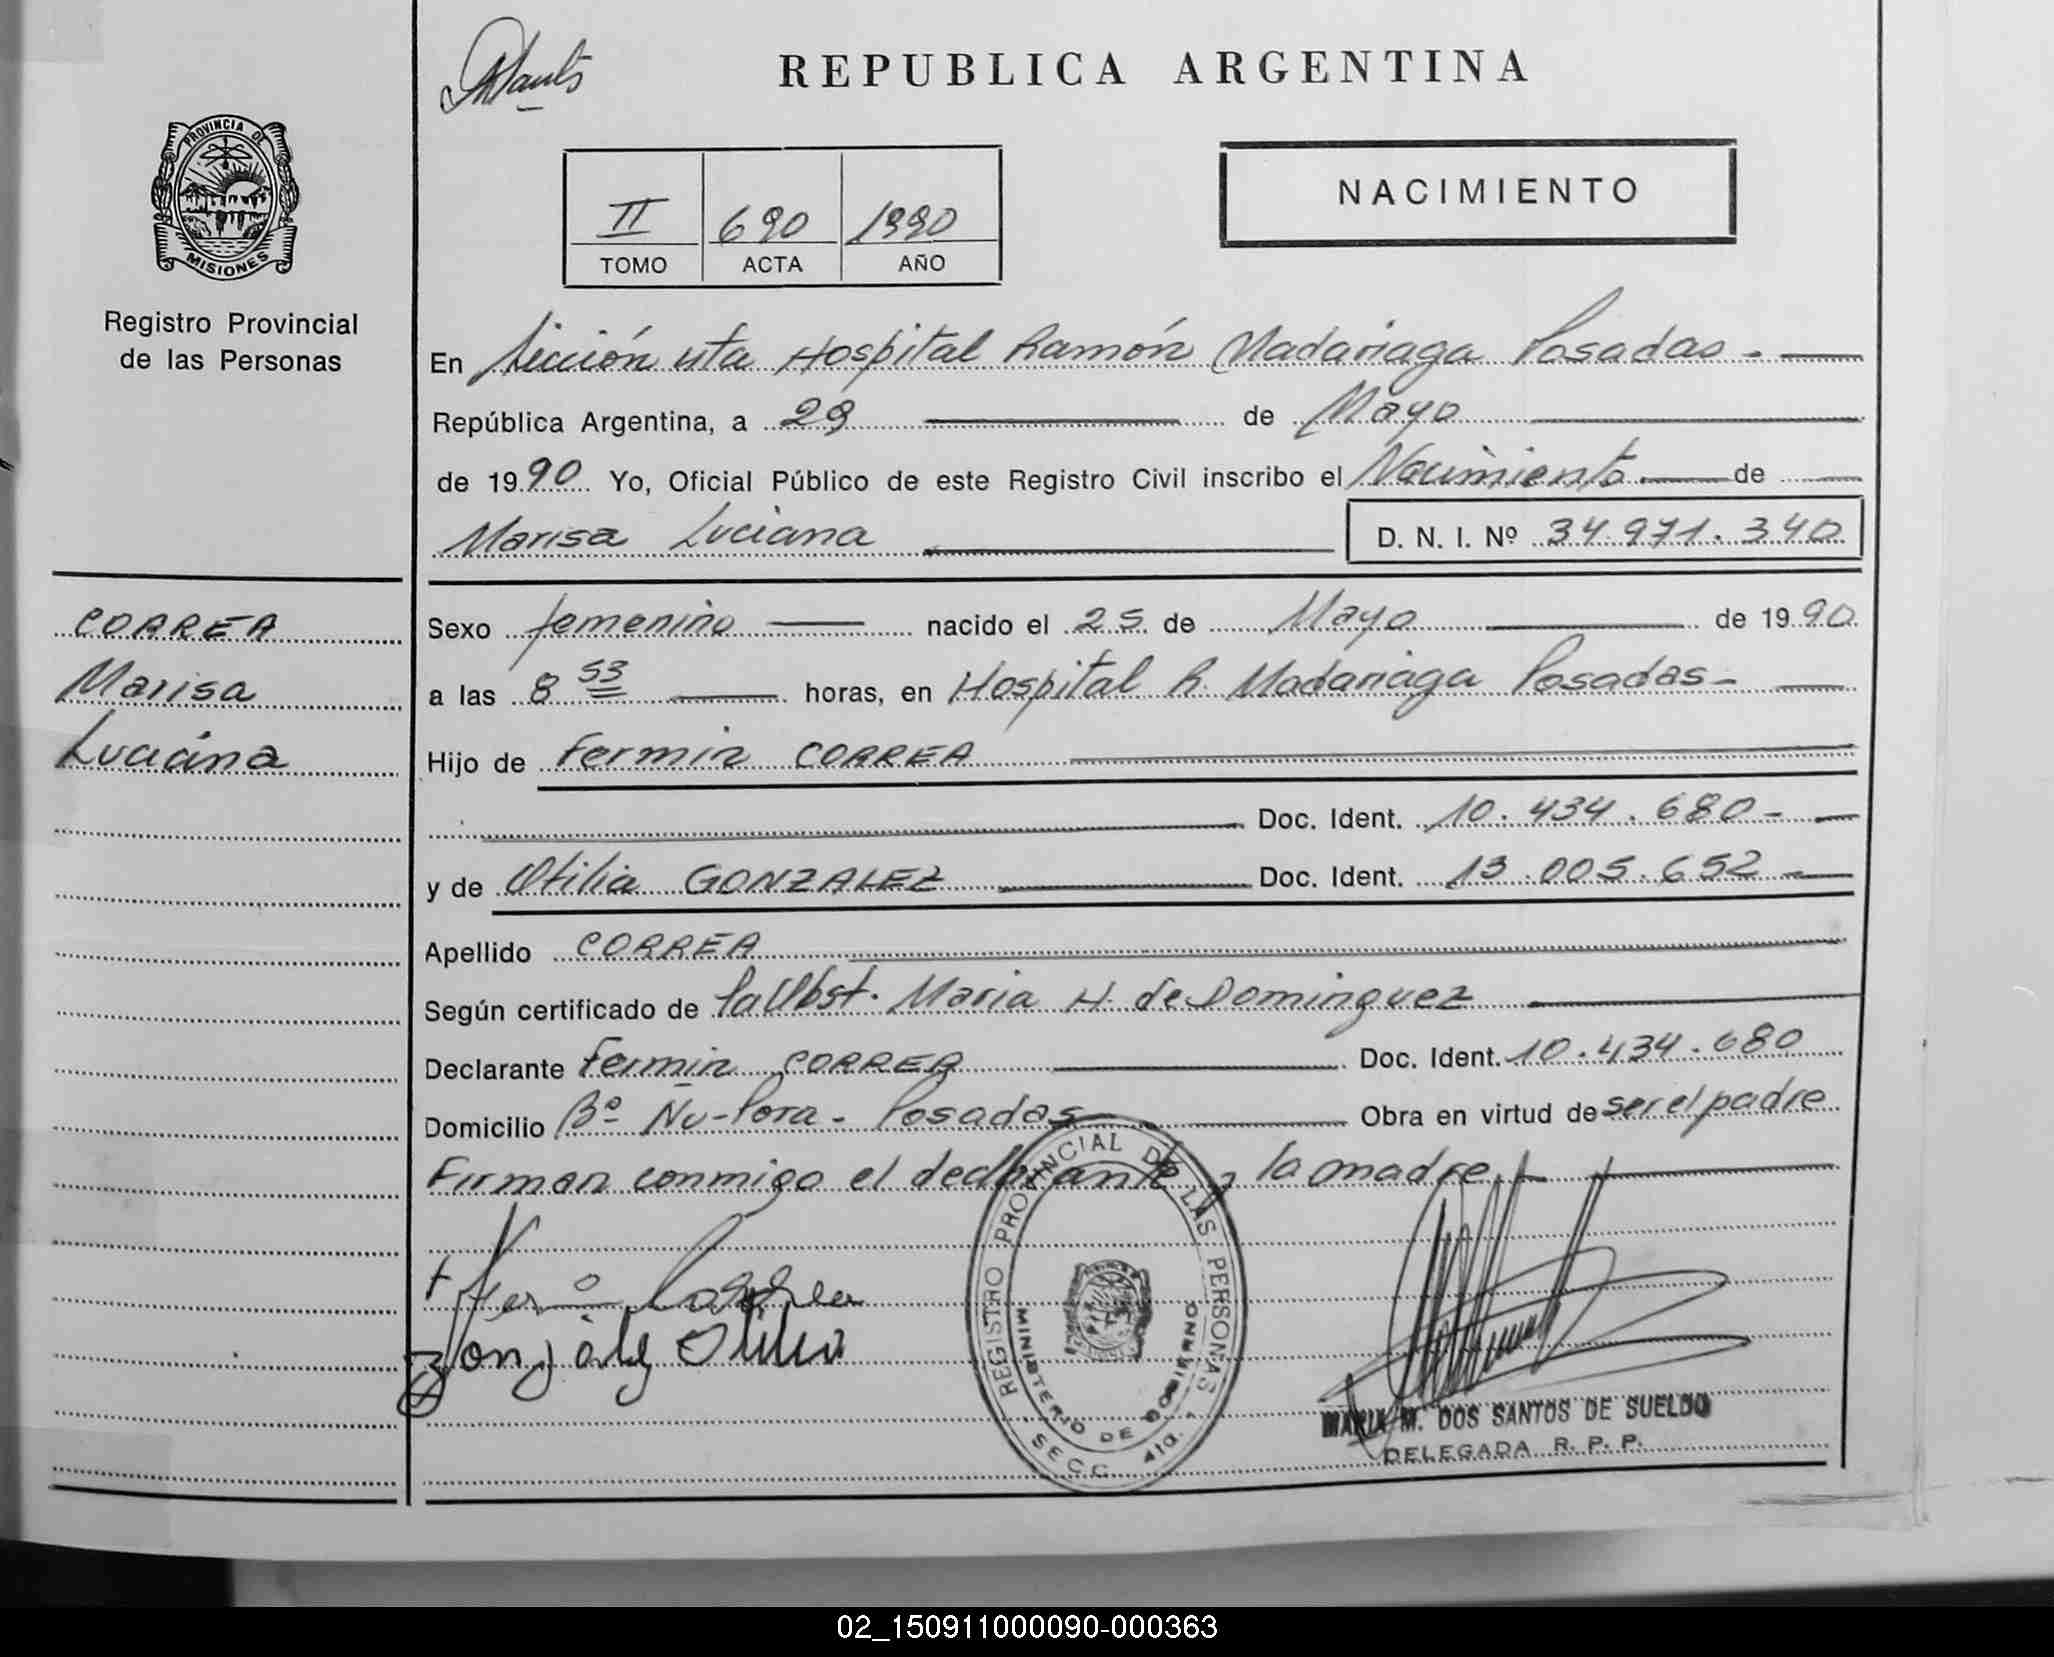 REPUBLICA ARGENTINA
PROVINCIA DE
MISIONES
Registro Provincial
de las Personas
NACIMIENTO
II 690 1990
TOMO ACTA AÑO
En Sección 4ta Hospital Ramón Madariaga Posadas.-
República Argentina, a 29 de Mayo
de 1990 Yo, Oficial Público de este Registro Civil inscribo el Nacimiento de
Marisa Luciana D. N. I. Nº 34.971.340
CORREA
Marisa
Luciana
Sexo femenino nacido el 25 de Mayo de 1990
a las 8 53 horas, en Hospital R. Madariaga Posadas-
Hijo de Fermin CORREA
Doc. Ident. 10.434.680-
y de Otilia GONZALEZ Doc. Ident. 13.005.652-
Apellido CORREA
Según certificado de la Obst. Maria H. de Dominguez
Declarante Fermin CORREA Doc. Ident. 10.434.680
Domicilio Bº Ñu-Pora - Posadas Obra en virtud de ser el padre
Firman conmigo el declarante y la madre
Gonzalez Otilia
REGISTRO PROVINCIAL DE LAS PERSONAS
MINISTERIO DE GOBIERNO
SECC. 4ta.
MARIA M. DOS SANTOS DE SUELDO
DELEGADA R. P. P.
02_150911000090-000363